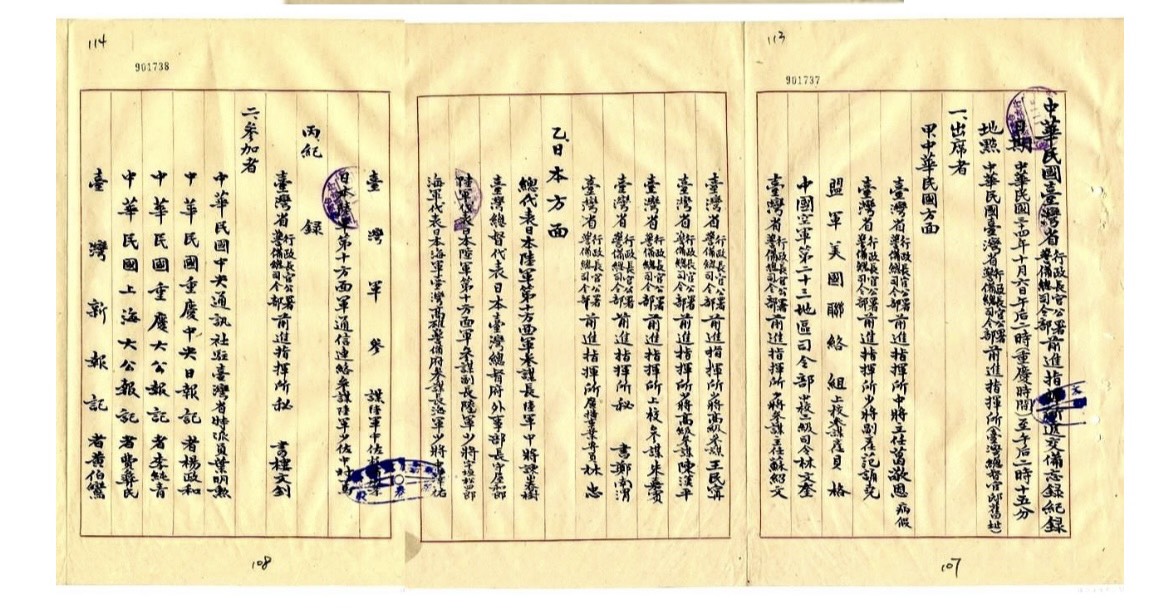 113
901737
中華民國臺灣省行政長官公署警備總司令部前進指揮所遞交備忘錄紀錄
日期 中華民國三十四年十月六日午后二時(重慶時間)至午后二時十五分
地點 中華民國臺灣省行政長官公署警備總司令部前進指揮所(臺灣總督官邸舊址)
一、出席者
甲、中華民國方面
臺灣省行政長官公署警備總司令部前進指揮所中將主任葛敬恩 病假
臺灣省行政長官公署警備總司令部前進指揮所少將副主任范誦堯
盟軍美國聯絡組上校參謀 貝格
中國空軍第二十三地區司令部 少校二級司令林文奎
臺灣省行政長官公署警備總司令部前進指揮所少將參謀主任蘇紹文
107
臺灣省行政長官公署警備總司令部前進指揮所少將高級參謀王民寧
臺灣省行政長官公署警備總司令部前進指揮所少將高級參謀陳漢平
臺灣省行政長官公署警備總司令部前進指揮所上校參謀朱嘉賓
臺灣省行政長官公署警備總司令部前進指揮所秘書鄭南渭
臺灣省行政長官公署警備總司令部前進指揮所 專員林忠
乙、日本方面
總代表日本陸軍第十方面軍參謀長陸軍中將諫山春樹
臺灣總督代表日本臺灣總督府外事部長守屋和郎
陸軍代表日本陸軍第十方面軍參謀副長陸軍少將
海軍代表日本海軍臺灣高雄警備府參謀長海軍少將中澤佑
114
901738
臺灣軍參謀陸軍中佐
日本陸軍第十方面軍通信連絡參謀陸軍少佐
丙、紀錄
臺灣省行政長官公署警備總司令部前進指揮所秘書樓文釗
二、參加者
中華民國中央通訊社駐臺灣省特派員葉明勲
中華民國重慶中央日報記者楊政和
中華民國重慶大公報記者李純青
中華民國上海大公報記者費彝民
臺灣新報記者黃伯
108